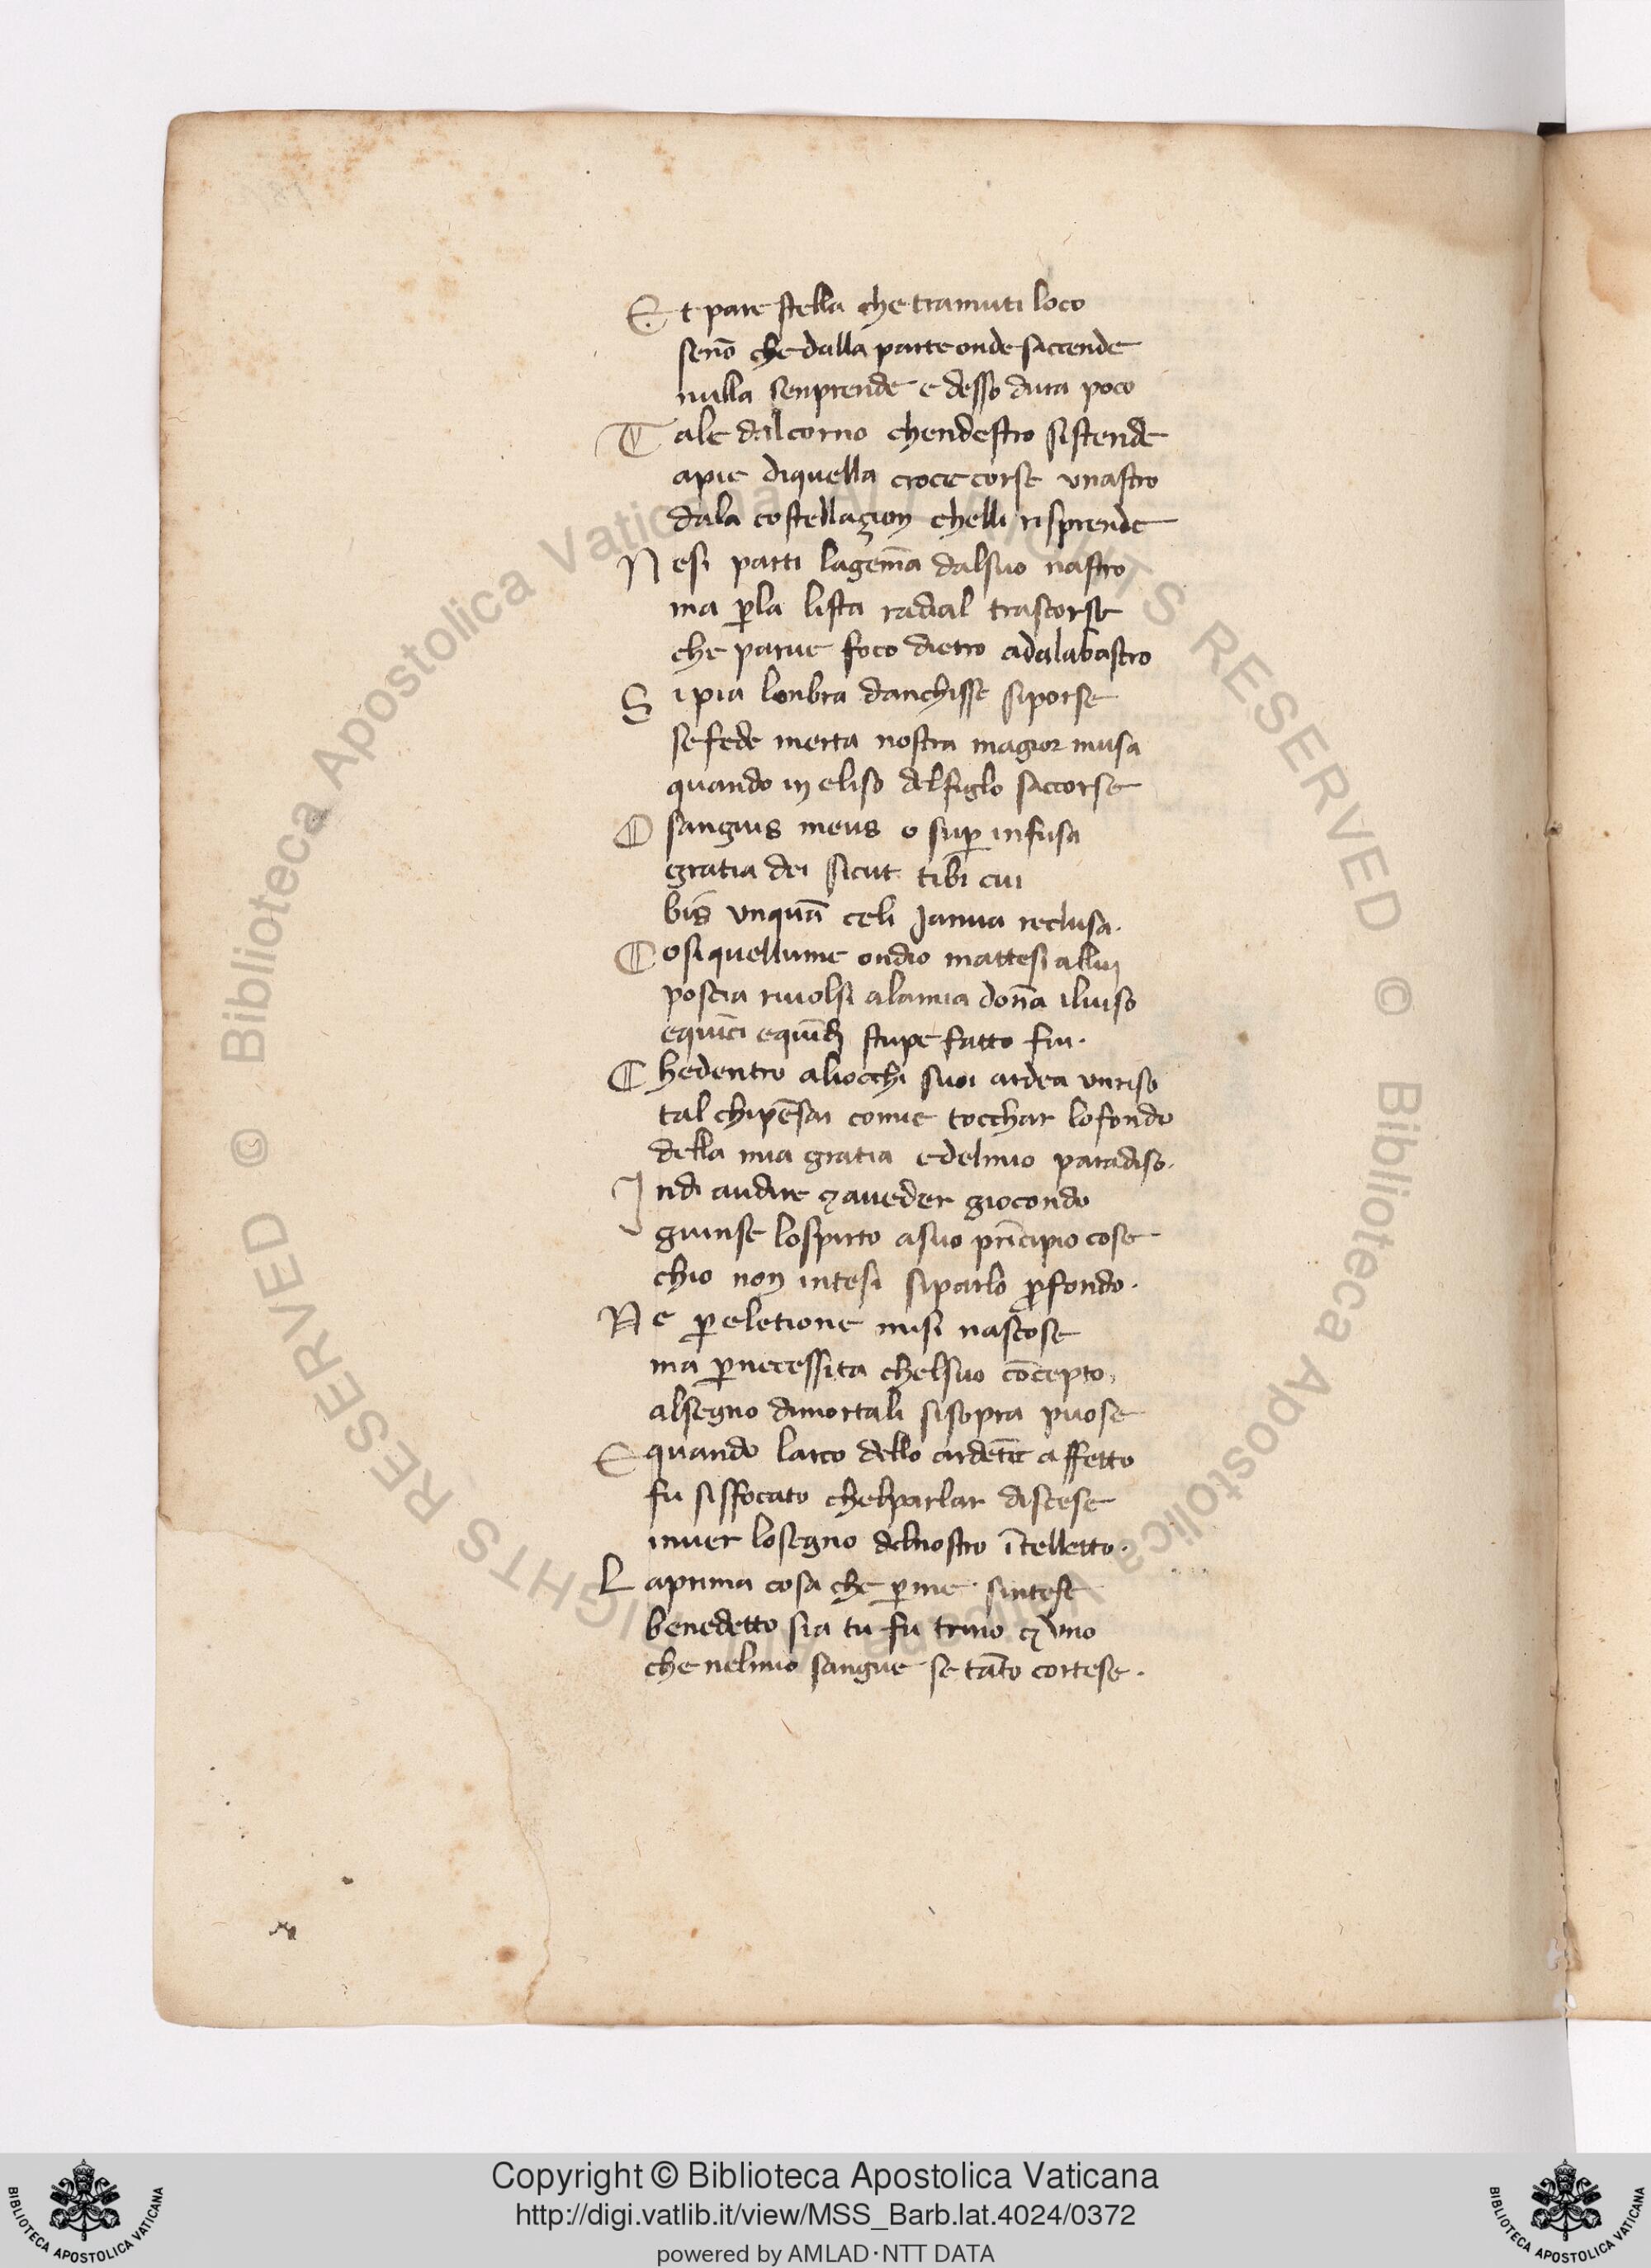 Et pare stella che tramuti loco
senō che dalla parte onde saccende
nulla senprende e desso dura poco
Tale dal corno chendestro sistende
apie diquella croce corse vnastro
dala costellazion chelli risprende
Nesi parti lagem̄a dalsuo nastro
ma ꝑla lista radial trascorse
che parue foco dietro adalabastro
Si pia lonbra danchisse siporse
sefede merta nostra magior musa
quando in eliso delfiglo saccorse
O sanguis meus o suꝑ infusa
gratia dei sicut tibi cui
bis vnquā celi Janua reclusa.
Cosiquellume ondio mattesi allui
poscia riuolsi alamia don̄a iluiso
equīci equīdi stupefatto fui.
Chedentro aliocchi suoi ardea vnriso
tal chipēsai comie tocchar lofondo
della mia gratia edelmio paradiso.
Indi audire ⁊ aueder giocondo
giunse lospirto asuo prīcipio cose
chio non intesi siparlo ꝓfondo.
Ne ꝑ eletione misi nascose
ma ꝑnecessita chelsuo cōcepto,
alsegno dimortali sisopra puose
E quando larco dello ardēte affetto
fu sisffocato chelparlar discese
inuer losegno delnostro ītelletto.
Laprima cosa che ꝑme sintese
benedetto sia tu fu trino ⁊ vno
che nelmio sangue se tāto cortese.
Copyright © Biblioteca Apostolica Vaticana
http://digi.vatlib.it/view/MSS_Barb.lat.4024/0372
powered by AMLAD·NTT DATA
BIBLIOTECA APOSTOLICA VATICANA
BIBLIOTECA APOSTOLICA VATICANA